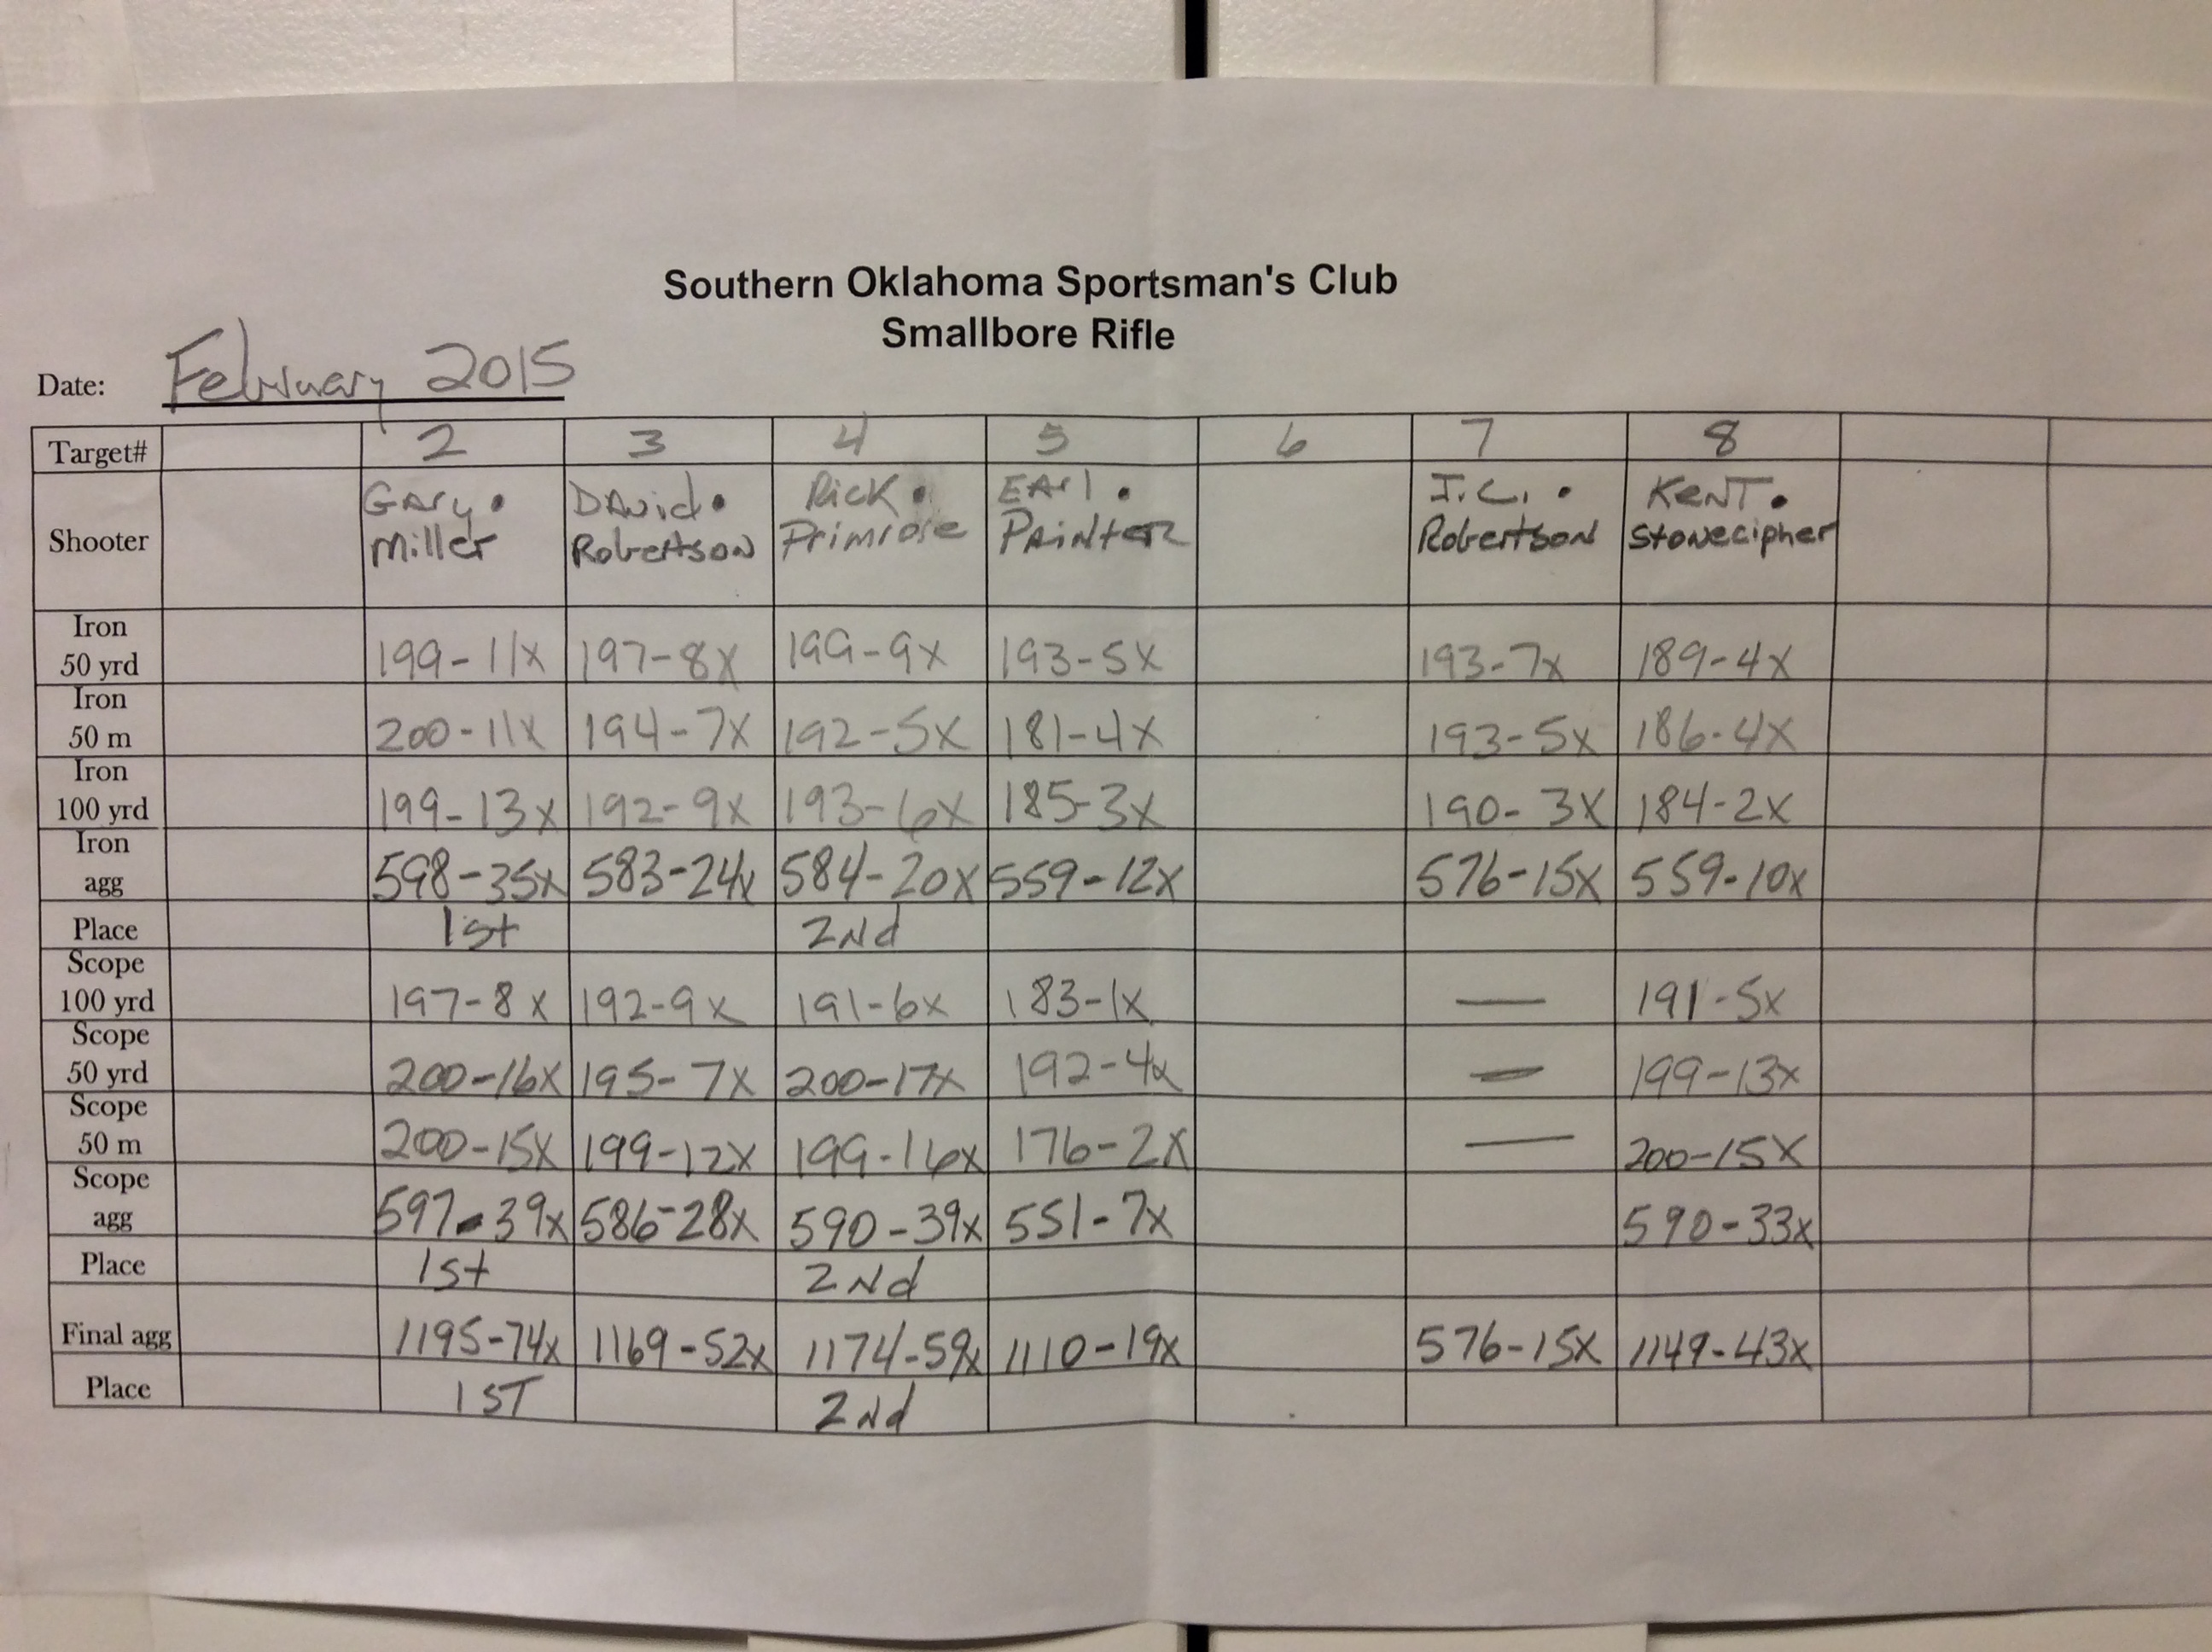 Southern Oklahoma Sportsman's Club
Smallbore Rifle
Date: February 2015
Target# 2 3 4 5 6 7 8
Shooter GAry • Miller DAvid • RobertsoN Rick • Primrose EArl • PAiNtER J.C. • RobertsoN KeNT • StoNecipher
Iron 50 yrd 199-11x 197-8x 199-9x 193-5x 193-7x 189-4x
Iron 50 m 200-11x 194-7x 192-5x 181-4x 193-5x 186-4x
Iron 100 yrd 199-13x 192-9x 193-6x 185-3x 190-3x 184-2x
Iron agg 598-35x 583-24x 584-20x 559-12x 576-15x 559-10x
Place 1st 2Nd
Scope 100 yrd 197-8x 192-9x 191-6x 183-1x — 191-5x
Scope 50 yrd 200-16x 195-7x 200-17x 192-4x — 199-13x
Scope 50 m 200-15x 199-12x 199-16x 176-2x — 200-15x
Scope agg 597-39x 586-28x 590-39x 551-7x 590-33x
Place 1st 2Nd
Final agg 1195-74x 1169-52x 1174-59x 1110-19x 576-15x 1149-43x
Place 1ST 2Nd